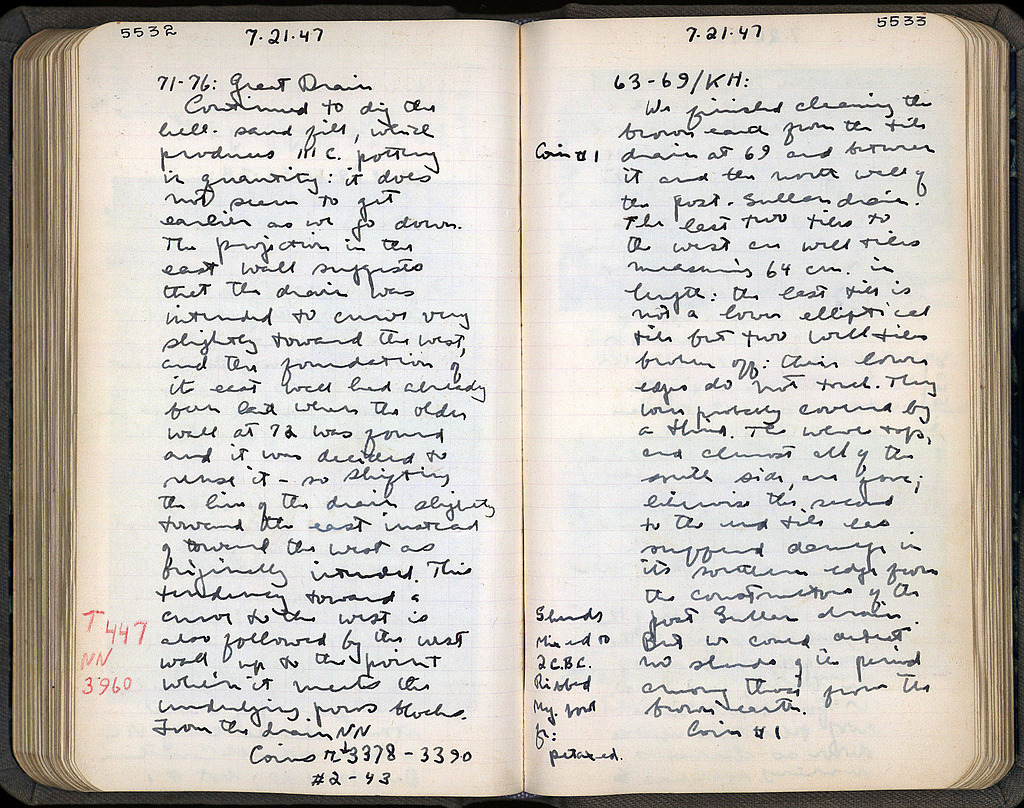 5532
7·21·47
71-76: Great Drain
Continued to dig the
hell. sand fill, which
produces III C. pottery
in quantity: it does
not seem to get
earlier as we go down.
The projection in the
east wall suggests
that the drain was
intended to curve very
slightly toward the west,
and the foundation of
its east wall had already
been laid when the older
wall at 72 was found
and it was decided to
reuse it - so shifting
the line of the drain slightly
toward the east instead
of toward the west as
originally intended. This
tendency toward a
curve to the west is
also followed by the west
wall up to the point
where it meets the
underlying poros blocks.
From the drain NN
Coins 3378 - 3390
#2-43
T 447
NN
3960
5533
7·21·47
63-69/KH:
We finished cleaning the
brown earth from the tile
Coin #1 drain at 69 and between
it and the north wall of
the post-Sullan drain.
The last two tiles to
the west are well tiles
measuring 64 cm. in
length: the last tile is
not a lower elliptical
tile but two well tiles
broken off: their lower
edges do not touch. They
were probably covered by
a third. The whole top,
and almost all of the
south side, are gone;
likewise the second
to the end tile has
suffered damage in
its southern edge from
the construction of the
post Sullan drain.
But we could detect
no sherds of its period
among those from the
brown earth.
Coin #1
Sherds
Mixed to
2 C.B.C.
Ribbed
My. foot
fr: